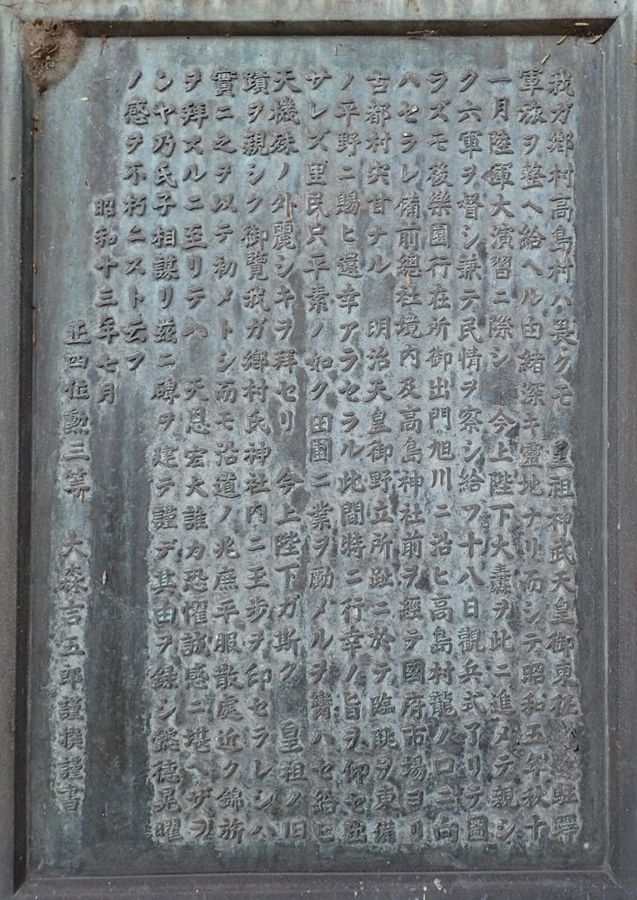 我ガ鄕村高島村ハ畏クモ　皇祖神武天皇御東征 駐蹕
軍旅ヲ整ヘ給ヘル由緖深キ靈地ナリ而シテ昭和五年秋十
一月陸軍大演習ニ際シ　今上陛下大纛ヲ此ニ進メテ親シ
ク六軍ヲ督シ兼テ民情ヲ察シ給フ十八日觀兵式了リテ圖
ラズモ後樂園行在所御出門旭川ニ沿ヒ高島村龍ノ口ニ向
ハセラレ備前總社境内及高島神社前ヲ經テ國府市場ヨリ
古都村宍甘ナル　明治天皇御野立所趾ニ於テ臨眺ヲ東備
ノ平野ニ賜ヒ還幸アラセラル此間特ニ行幸ノ旨ヲ仰セ出
サレズ里民只平素ノ如ク田圃ニ業ヲ勵メルヲ齎ハセ給ヒ
天機殊ノ外麗シキヲ拜セリ　今上陛下ガ斯ク　皇祖ノ旧
蹟ヲ親シク御覽我ガ鄕村氏神社内ニ玉歩ヲ印セラレシハ
實ニ之ヲ以テ初メトシ而モ沿道ノ兆庶平服散處近ク錦旂
ヲ拜スルニ至リテハ　天恩宏大誰カ恐懼誠感ニ堪ヘザラ
ンヤ乃氏子相謀リ茲ニ碑ヲ建テ謹デ其由ヲ錄シ懿德晃曜
ノ感ヲ不朽ニスト云フ
昭和十三年七月
正四位勳三等　大森吉五郎謹撰謹書